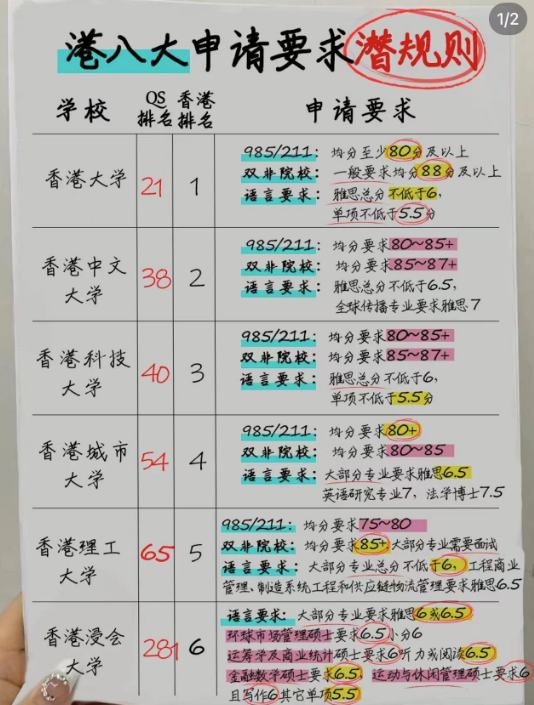 1/2
港八大申请要求潜规则
学校 QS排名 香港排名 申请要求
香港大学 21 1
985/211: 均分至少80分及以上
双非院校: 一般要求均分88分及以上
语言要求: 雅思总分不低于6,
单项不低于5.5分
香港中文大学 38 2
985/211: 均分要求80~85+
双非院校: 均分要求85~87+
语言要求: 雅思总分不低于6.5,
全球传播专业要求雅思7
香港科技大学 40 3
985/211: 均分要求80~85+
双非院校: 均分要求85~87+
语言要求: 雅思总分不低于6,
单项不低于5.5分
香港城市大学 54 4
985/211: 均分要求80+
双非院校: 均分要求80~85
语言要求: 大部分专业要求雅思6.5
英语研究专业7, 法学博士7.5
香港理工大学 65 5
985/211: 均分要求75~80
双非院校: 均分要求85+,大部分专业需要面试
语言要求: 大部分专业总分不低于6, 工程商业
管理、制造系统工程和供应链物流管理要求雅思6.5
香港浸会大学 281 6
语言要求: 大部分专业要求雅思6或6.5
环球市场管理硕士要求6.5小分6
运筹学及商业统计硕士要求6听力或阅读6.5
金融数学硕士要求6.5, 运动与休闲管理硕士要求6
且写作6其它单项5.5